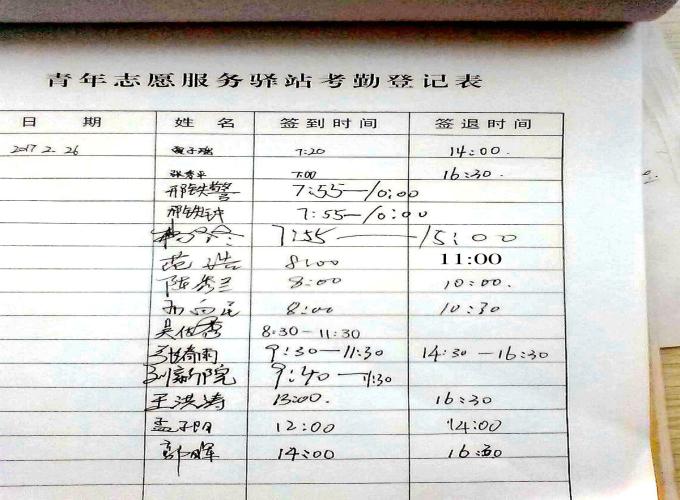 青年志愿服务驿站考勤登记表
日 期 姓 名 签到时间 签退时间
2017 2. 26 7:20 14:00.
张秀平 7:00 16:30.
邢铁警 7:55—10:00
邢铁钟 7:55—10:00
7:55——15:00
范浩 8:00 11:00
陈秀兰 8:00 10:00.
8:00 10:30
吴俊秀 8:30-11:30
张倚雨 9:30—11:30 14:30-16:30
刘新院 9:40—11:30
王洪涛 13:00. 16:30
孟子明 12:00 14:00
郭晖 14:00 16:30